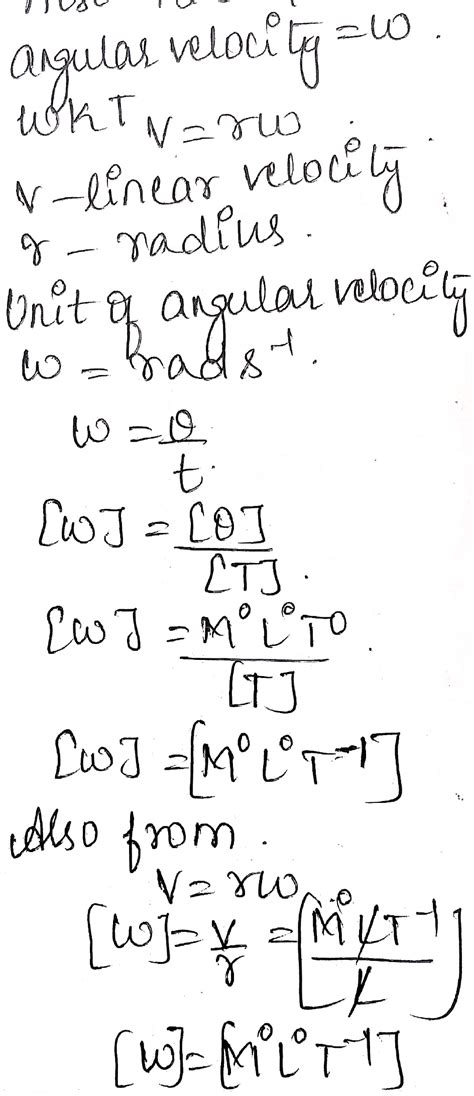 angular velocity = ω.
WKT v = rω
v - linear velocity
r - radius.
Unit of angular velocity
ω = rad s⁻¹.
ω = θ/t.
[ω] = [θ]/[T].
[ω] = M⁰L⁰T⁰/[T].
[ω] = [M⁰L⁰T⁻¹]
Also from.
v = rω
[ω] = v/r = [M⁰LT⁻¹/L]
[ω] = [M⁰L⁰T⁻¹]